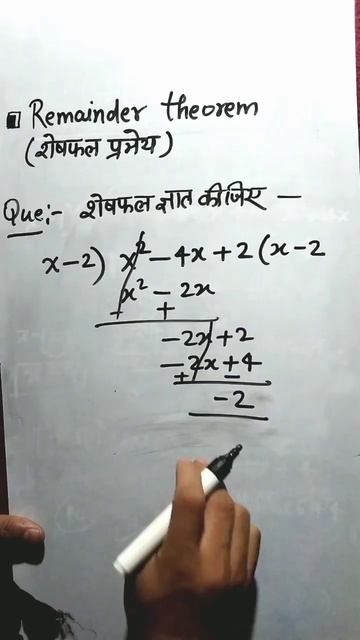 Remainder theorem
(शेषफल प्रमेय)
Que:- शेषफल ज्ञात कीजिए —
x-2) x² - 4x + 2 (x-2
x² - 2x
- +
-2x + 2
-2x + 4
+ -
-2